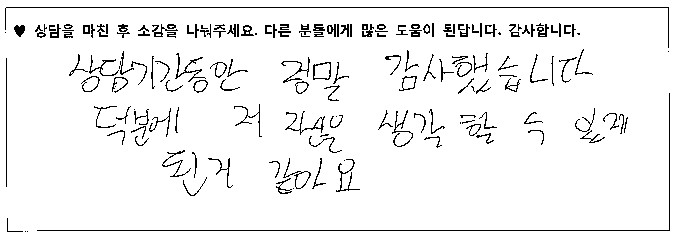 ♥ 상담을 마친 후 소감을 나눠주세요. 다른 분들에게 많은 도움이 된답니다. 감사합니다.
상담기간동안 정말 감사했습니다
덕분에 저 자신을 생각 할 수 있게
된거 같아요